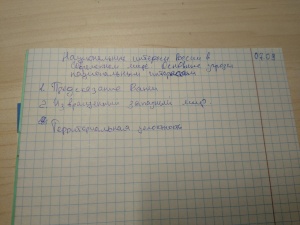 Национальные интересы России в 07.09
современном мире. Основные угрозы
национальным интересам
1. Предсказание Ванги
2. Извращенный западный мир
3. Территориальная целостность